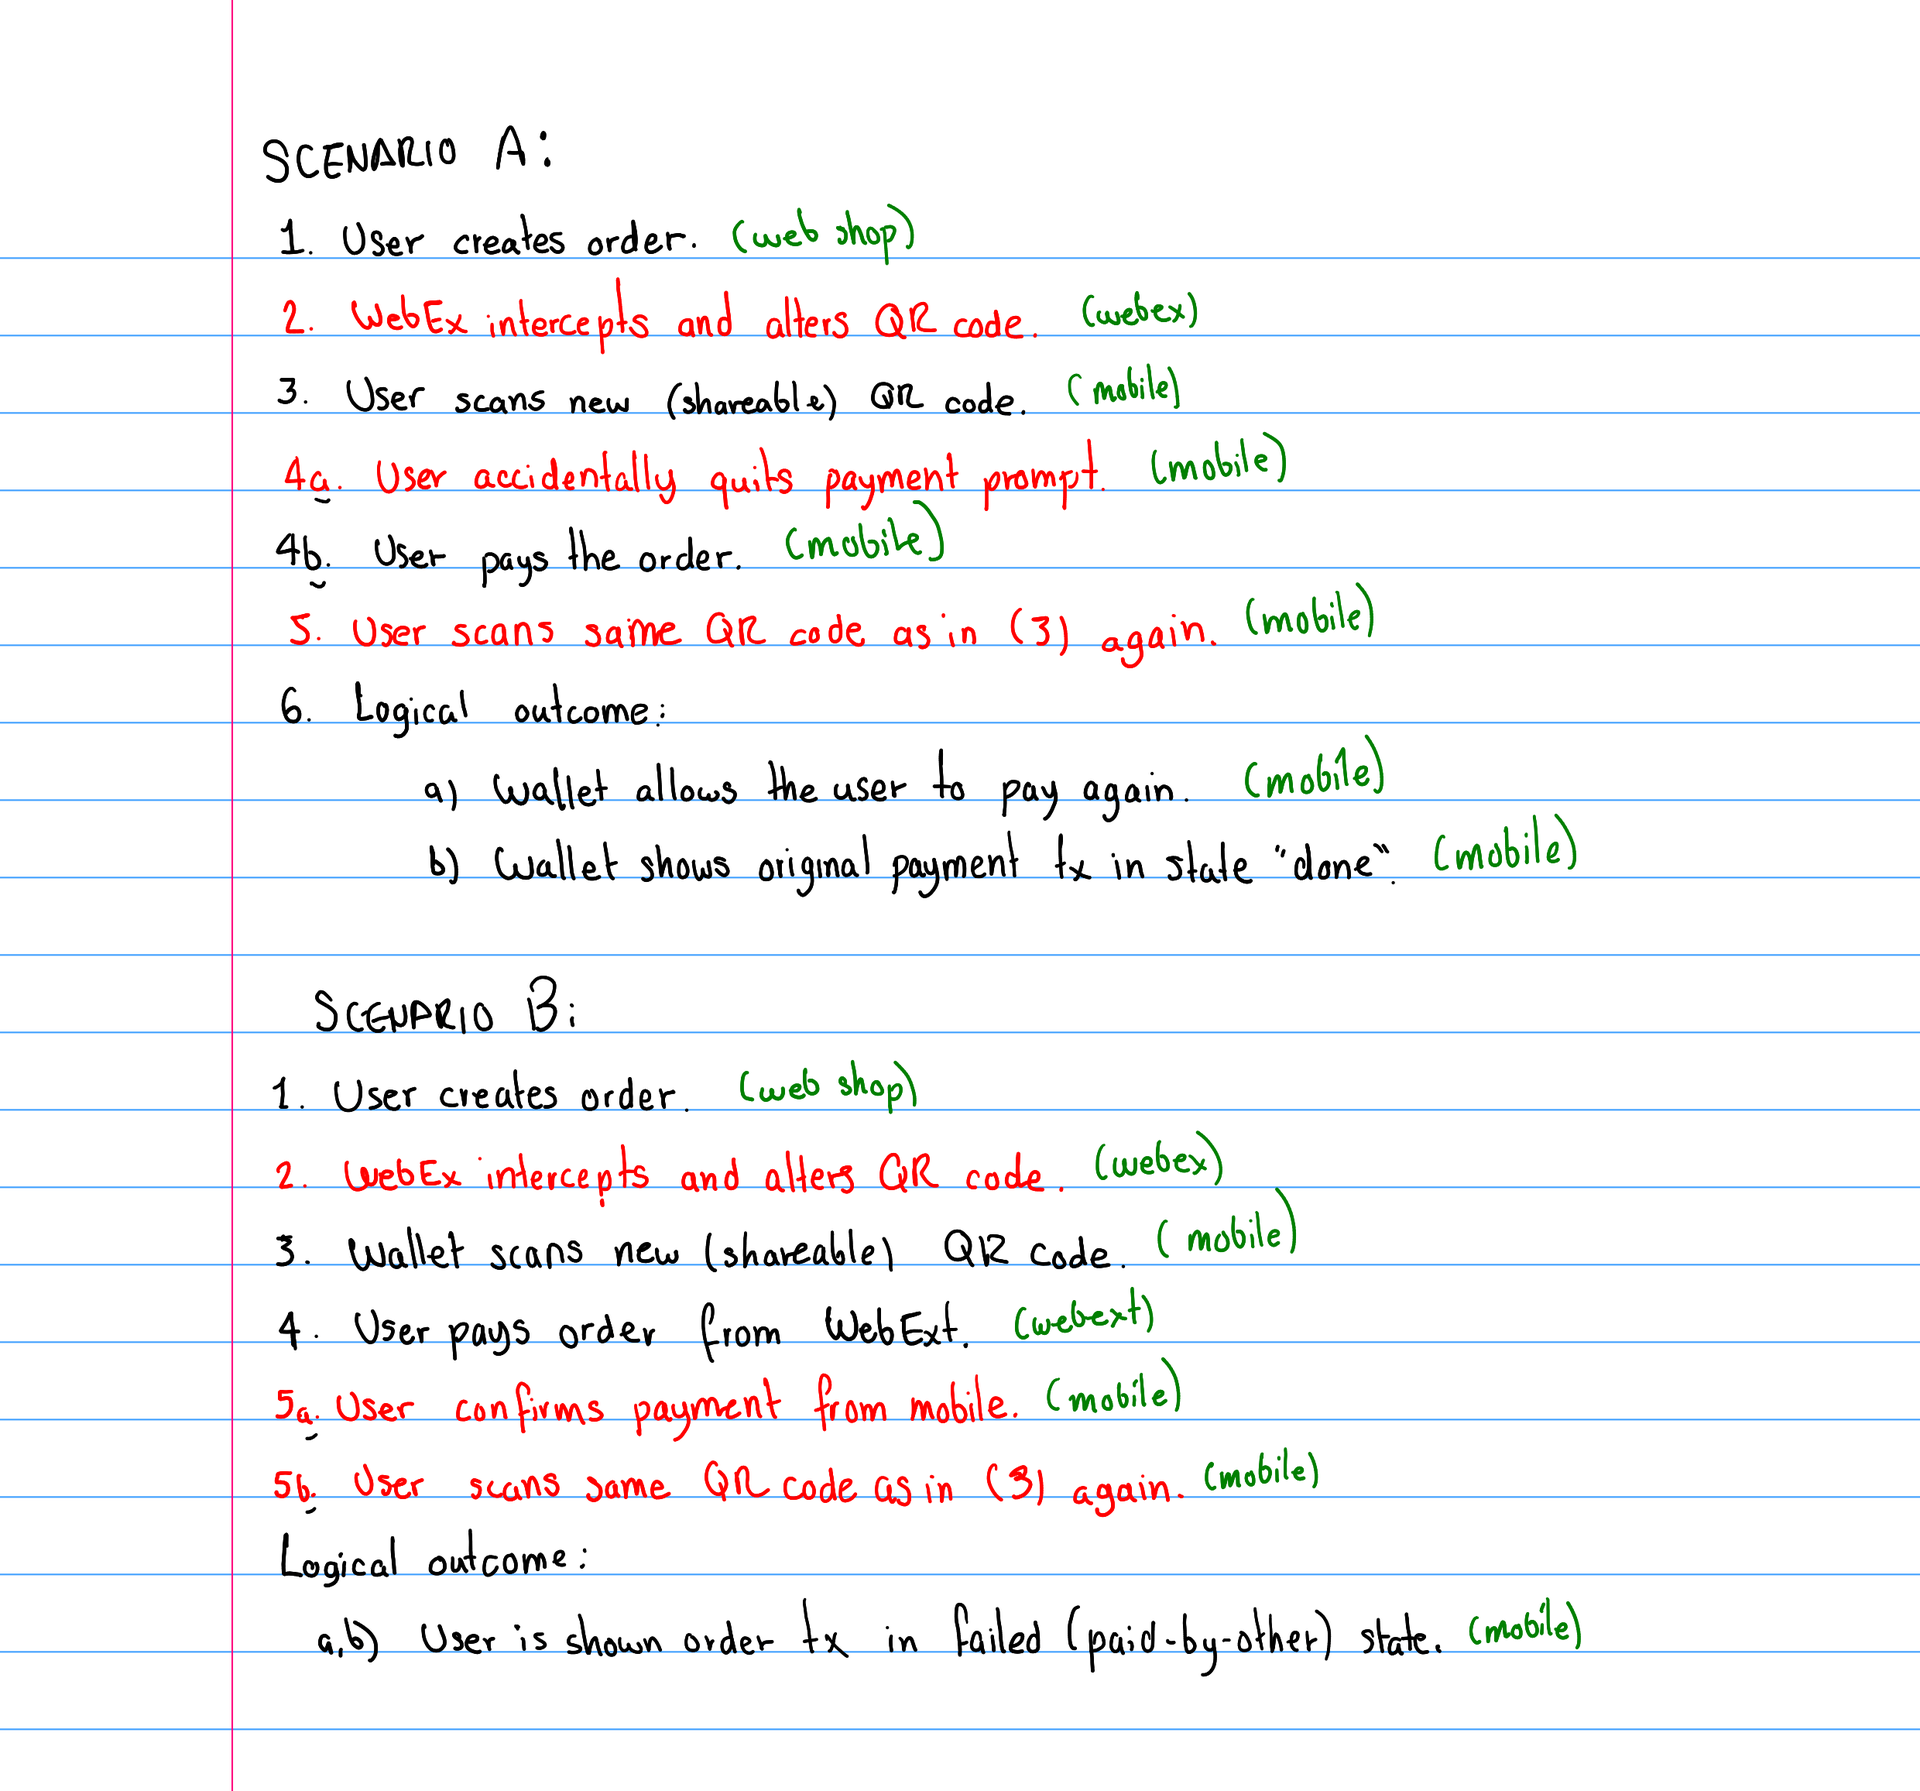 SCENARIO A:
1. User creates order. (web shop)
2. WebEx intercepts and alters QR code. (webex)
3. User scans new (shareable) QR code. (mobile)
4a. User accidentally quits payment prompt. (mobile)
4b. User pays the order. (mobile)
5. User scans same QR code as in (3) again. (mobile)
6. Logical outcome:
a) Wallet allows the user to pay again. (mobile)
b) Wallet shows original payment tx in state "done". (mobile)
SCENARIO B:
1. User creates order. (web shop)
2. WebEx intercepts and alters QR code. (webex)
3. Wallet scans new (shareable) QR code. (mobile)
4. User pays order from WebExt. (webext)
5a. User confirms payment from mobile. (mobile)
5b. User scans same QR code as in (3) again. (mobile)
Logical outcome:
a,b) User is shown order tx in failed (paid-by-other) state. (mobile)